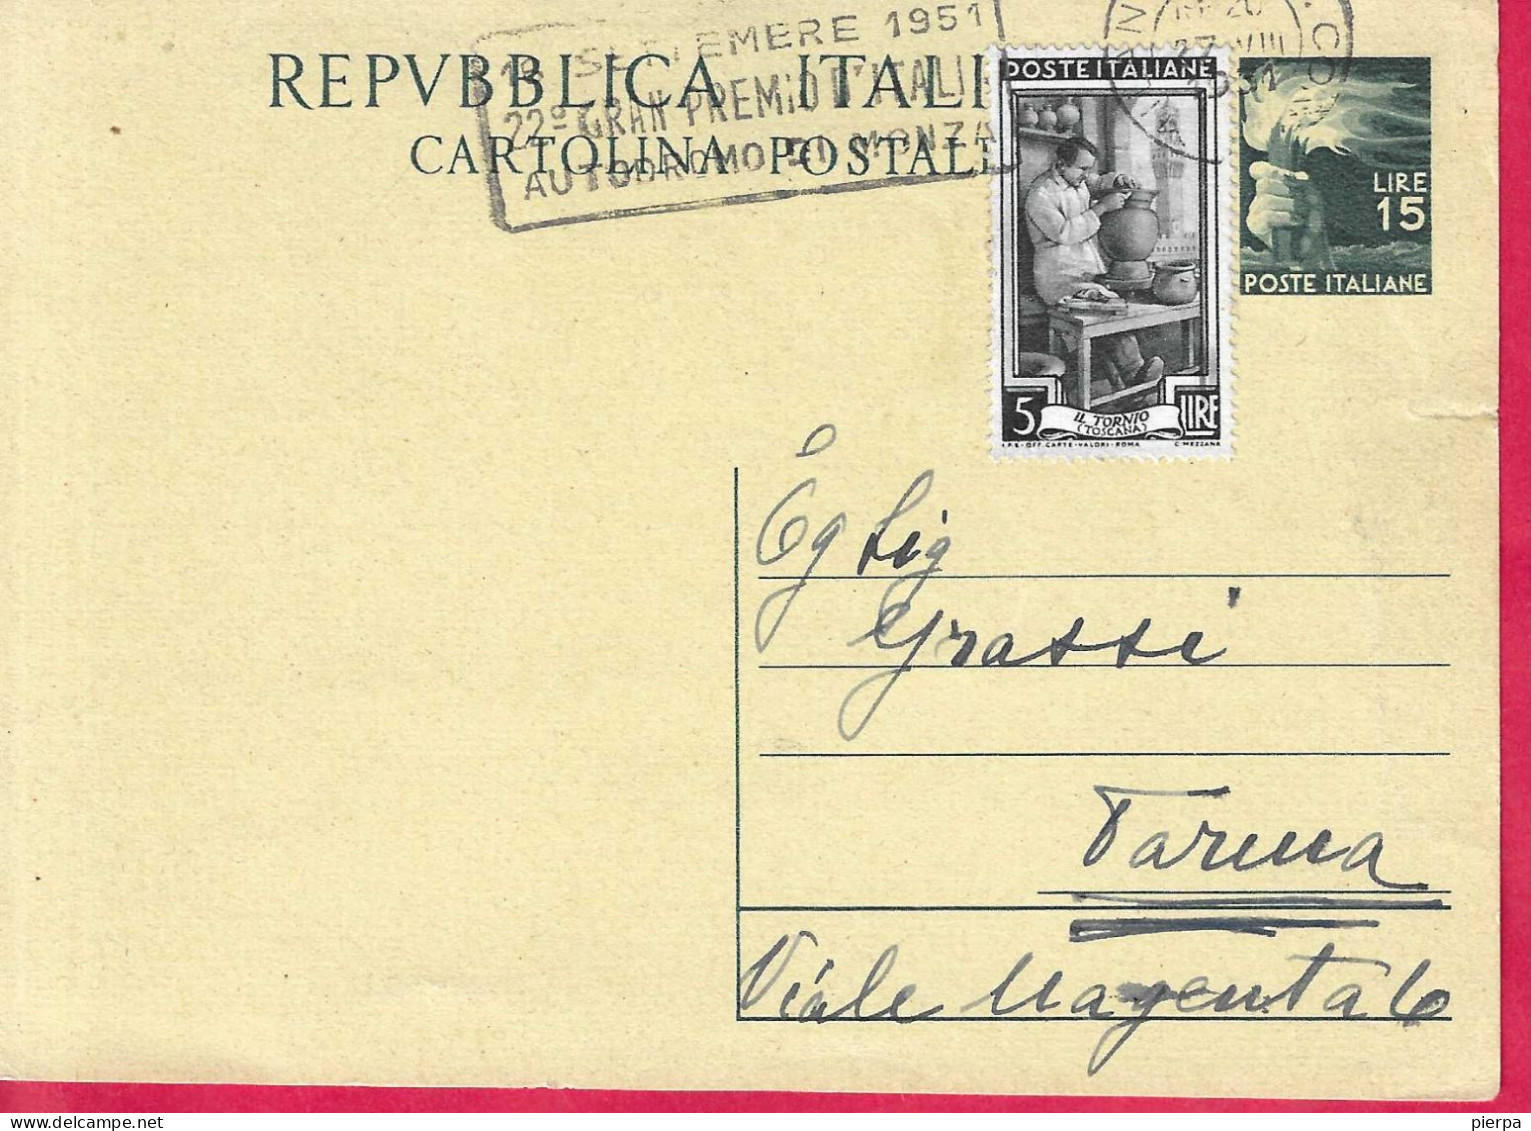 SETTEMBRE 1951
22º GRAN PREMIO D'ITALIA
AUTODROMO DI MONZA
REPVBBLICA ITALI
CARTOLINA POSTALE
1951
POSTE ITALIANE
5 LIRE
IL TORNIO
(TOSCANA)
I.P.S.-OFF. CARTE-VALORI-ROMA C. MEZZANA
LIRE
15
POSTE ITALIANE
Sig
Grassi
Parma
Viale Magenta 6
pierpa